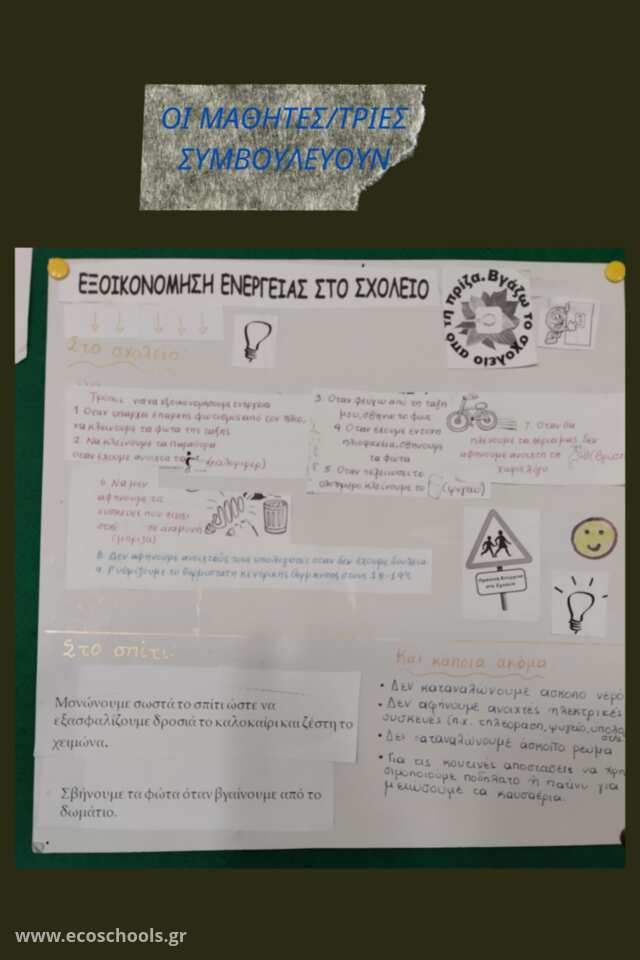 ΟΙ ΜΑΘΗΤΕΣ/ΤΡΙΕΣ
ΣΥΜΒΟΥΛΕΥΟΥΝ
ΕΞΟΙΚΟΝΟΜΗΣΗ ΕΝΕΡΓΕΙΑΣ ΣΤΟ ΣΧΟΛΕΙΟ
Βγάζω το σχολείο από τη πρίζα.
Στο σχολείο:
Τρόποι για να εξοικονομήσουμε ενέργεια
1. Όταν υπάρχει επαρκής φωτισμός από τον ήλιο,
να κλείνουμε τα φώτα της τάξης
2. Να κλείνουμε τα παράθυρα
όταν έχουμε ανοιχτά τα (καλοριφέρ)
3. Όταν φεύγω από τη τάξη
μου, σβήνω το φως
4. Όταν έχουμε έντονη
ηλιοφάνεια, σβήνουμε
τα φώτα
5. Όταν τελειώσει το
ολοήμερο κλείνουμε το (ψυγείο)
6. Να μην
αφήνουμε τις
συσκευές που είναι
στη σε αναμονή
(μπρίζα)
7. Όταν θα
πλένουμε τα χέρια μας δεν
αφήνουμε ανοιχτή τη (βρύση)
8. Δεν αφήνουμε ανοιχτούς τους υπολογιστές όταν δεν έχουμε δουλειά
9. Ρυθμίζουμε το θερμοστάτη κεντρικής θέρμανσης στους 18-19°C
Προσοχή
στο Σχολείο
Στο σπίτι:
Μονώνουμε σωστά το σπίτι ώστε να
εξασφαλίζουμε δροσιά το καλοκαίρι και ζέστη το
χειμώνα.
Σβήνουμε τα φώτα όταν βγαίνουμε από το
δωμάτιο.
Και κάποια ακόμα
• Δεν καταναλώνουμε άσκοπο νερό
• Δεν αφήνουμε ανοιχτές ηλεκτρικές
συσκευές (π.χ. τηλεόραση, ψυγείο,
• Δεν καταναλώνουμε άσκοπο ρεύμα
• Για τις κοντινές αποστάσεις να
σιμοποιούμε ποδήλατο ή πατίνι για
μειώσουμε τα καυσαέρια.
www.ecoschools.gr